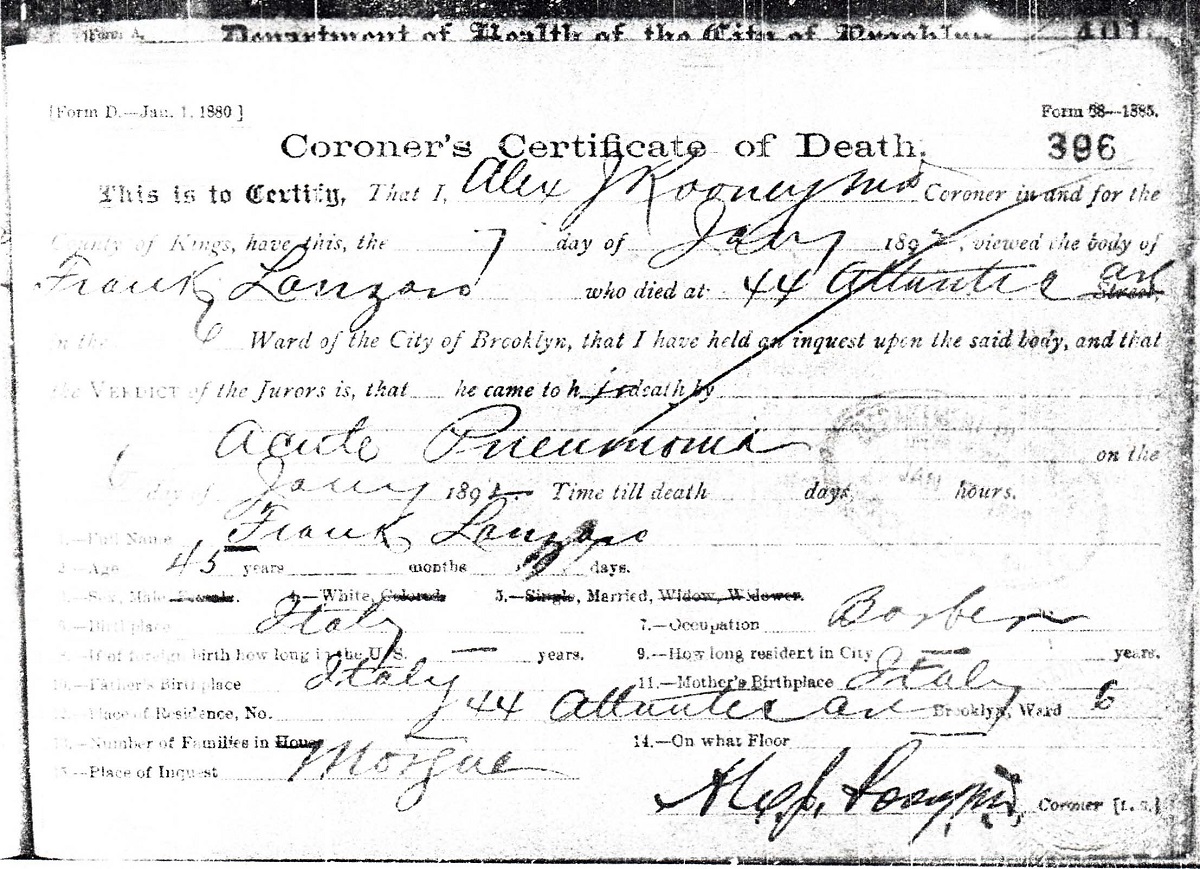 [Form A.
Department of Health of the City of Brooklyn 401
[Form D.—Jan. 1, 1880] Form 38—1885.
Coroner's Certificate of Death. 396
This is to Certify, That I, Alex J Rooney MD Coroner in and for the
County of Kings, have this, the 7 day of Jany 1892, viewed the body of
Frank Lanzaro who died at 44 Atlantic av Street,
in the 6 Ward of the City of Brooklyn, that I have held an inquest upon the said body, and that
the VERDICT of the Jurors is, that he came to h is death by
Acute Pneumonia on the
6 day of Jany 1892 Time till death days, hours.
1.—Full Name Frank Lanzaro
2.—Age 45 years months days.
3.—Sex, Male, Female. 4.—White, Colored. 5.—Single, Married, Widow, Widower.
6.—Birthplace Italy 7.—Occupation Barber
8.—If of foreign birth how long in the U.S. — years. 9.—How long resident in City — years.
10.—Father's Birthplace Italy 11.—Mother's Birthplace Italy
12.—Place of Residence, No. 44 Atlantic av Brooklyn, Ward 6
13.—Number of Families in House — 14.—On what Floor —
15.—Place of Inquest Morgue
Coroner [L. S.]